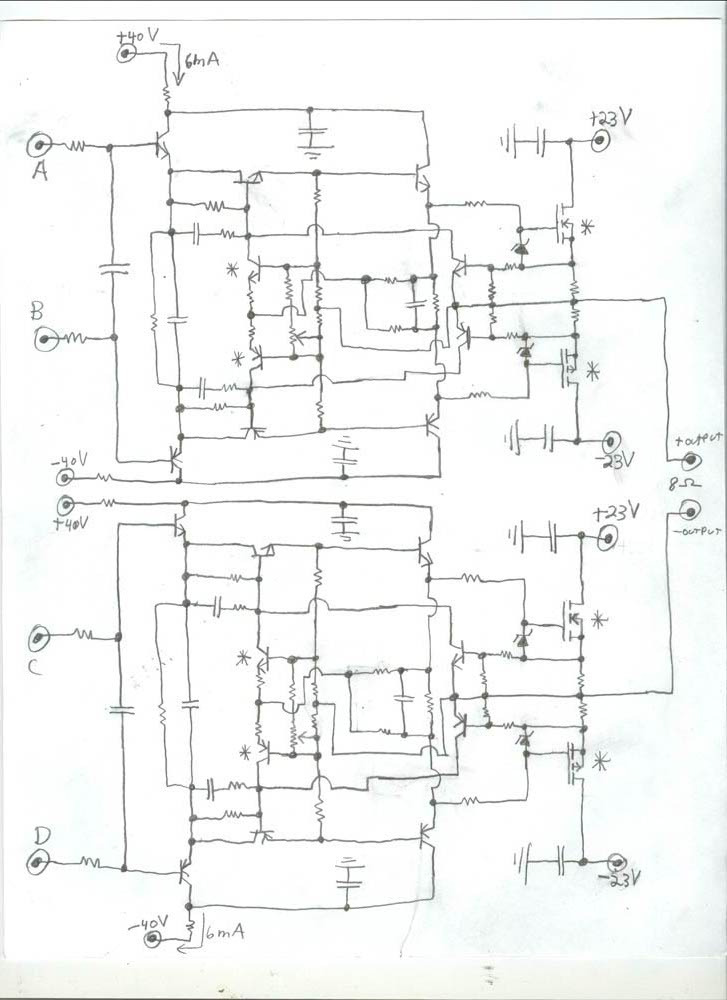 +40V
6mA
+23V
A
*
*
B
*
*
-40V
-23V
+OUTPUT
8Ω
+40V
+23V
-OUTPUT
*
*
C
*
*
D
-23V
-40V
6mA